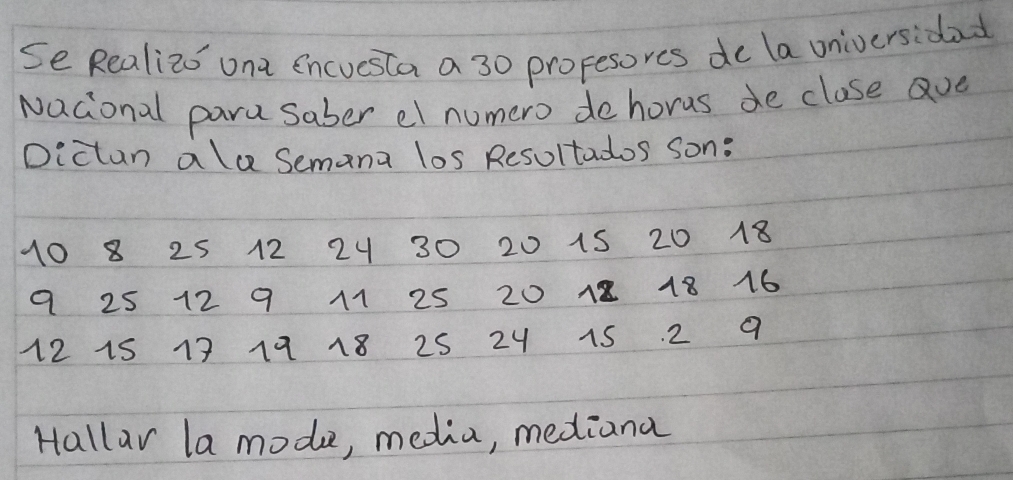 Se Realizó una encuesta a 30 profesores de la universidad
Nacional para saber el numero de horas de clase que
Dictan a la semana los Resultados son:
10 8 25 12 24 30 20 15 20 18
9 25 12 9 11 25 20 12 18 16
12 15 17 19 18 25 24 15 2 9
Hallar la moda, media, mediana